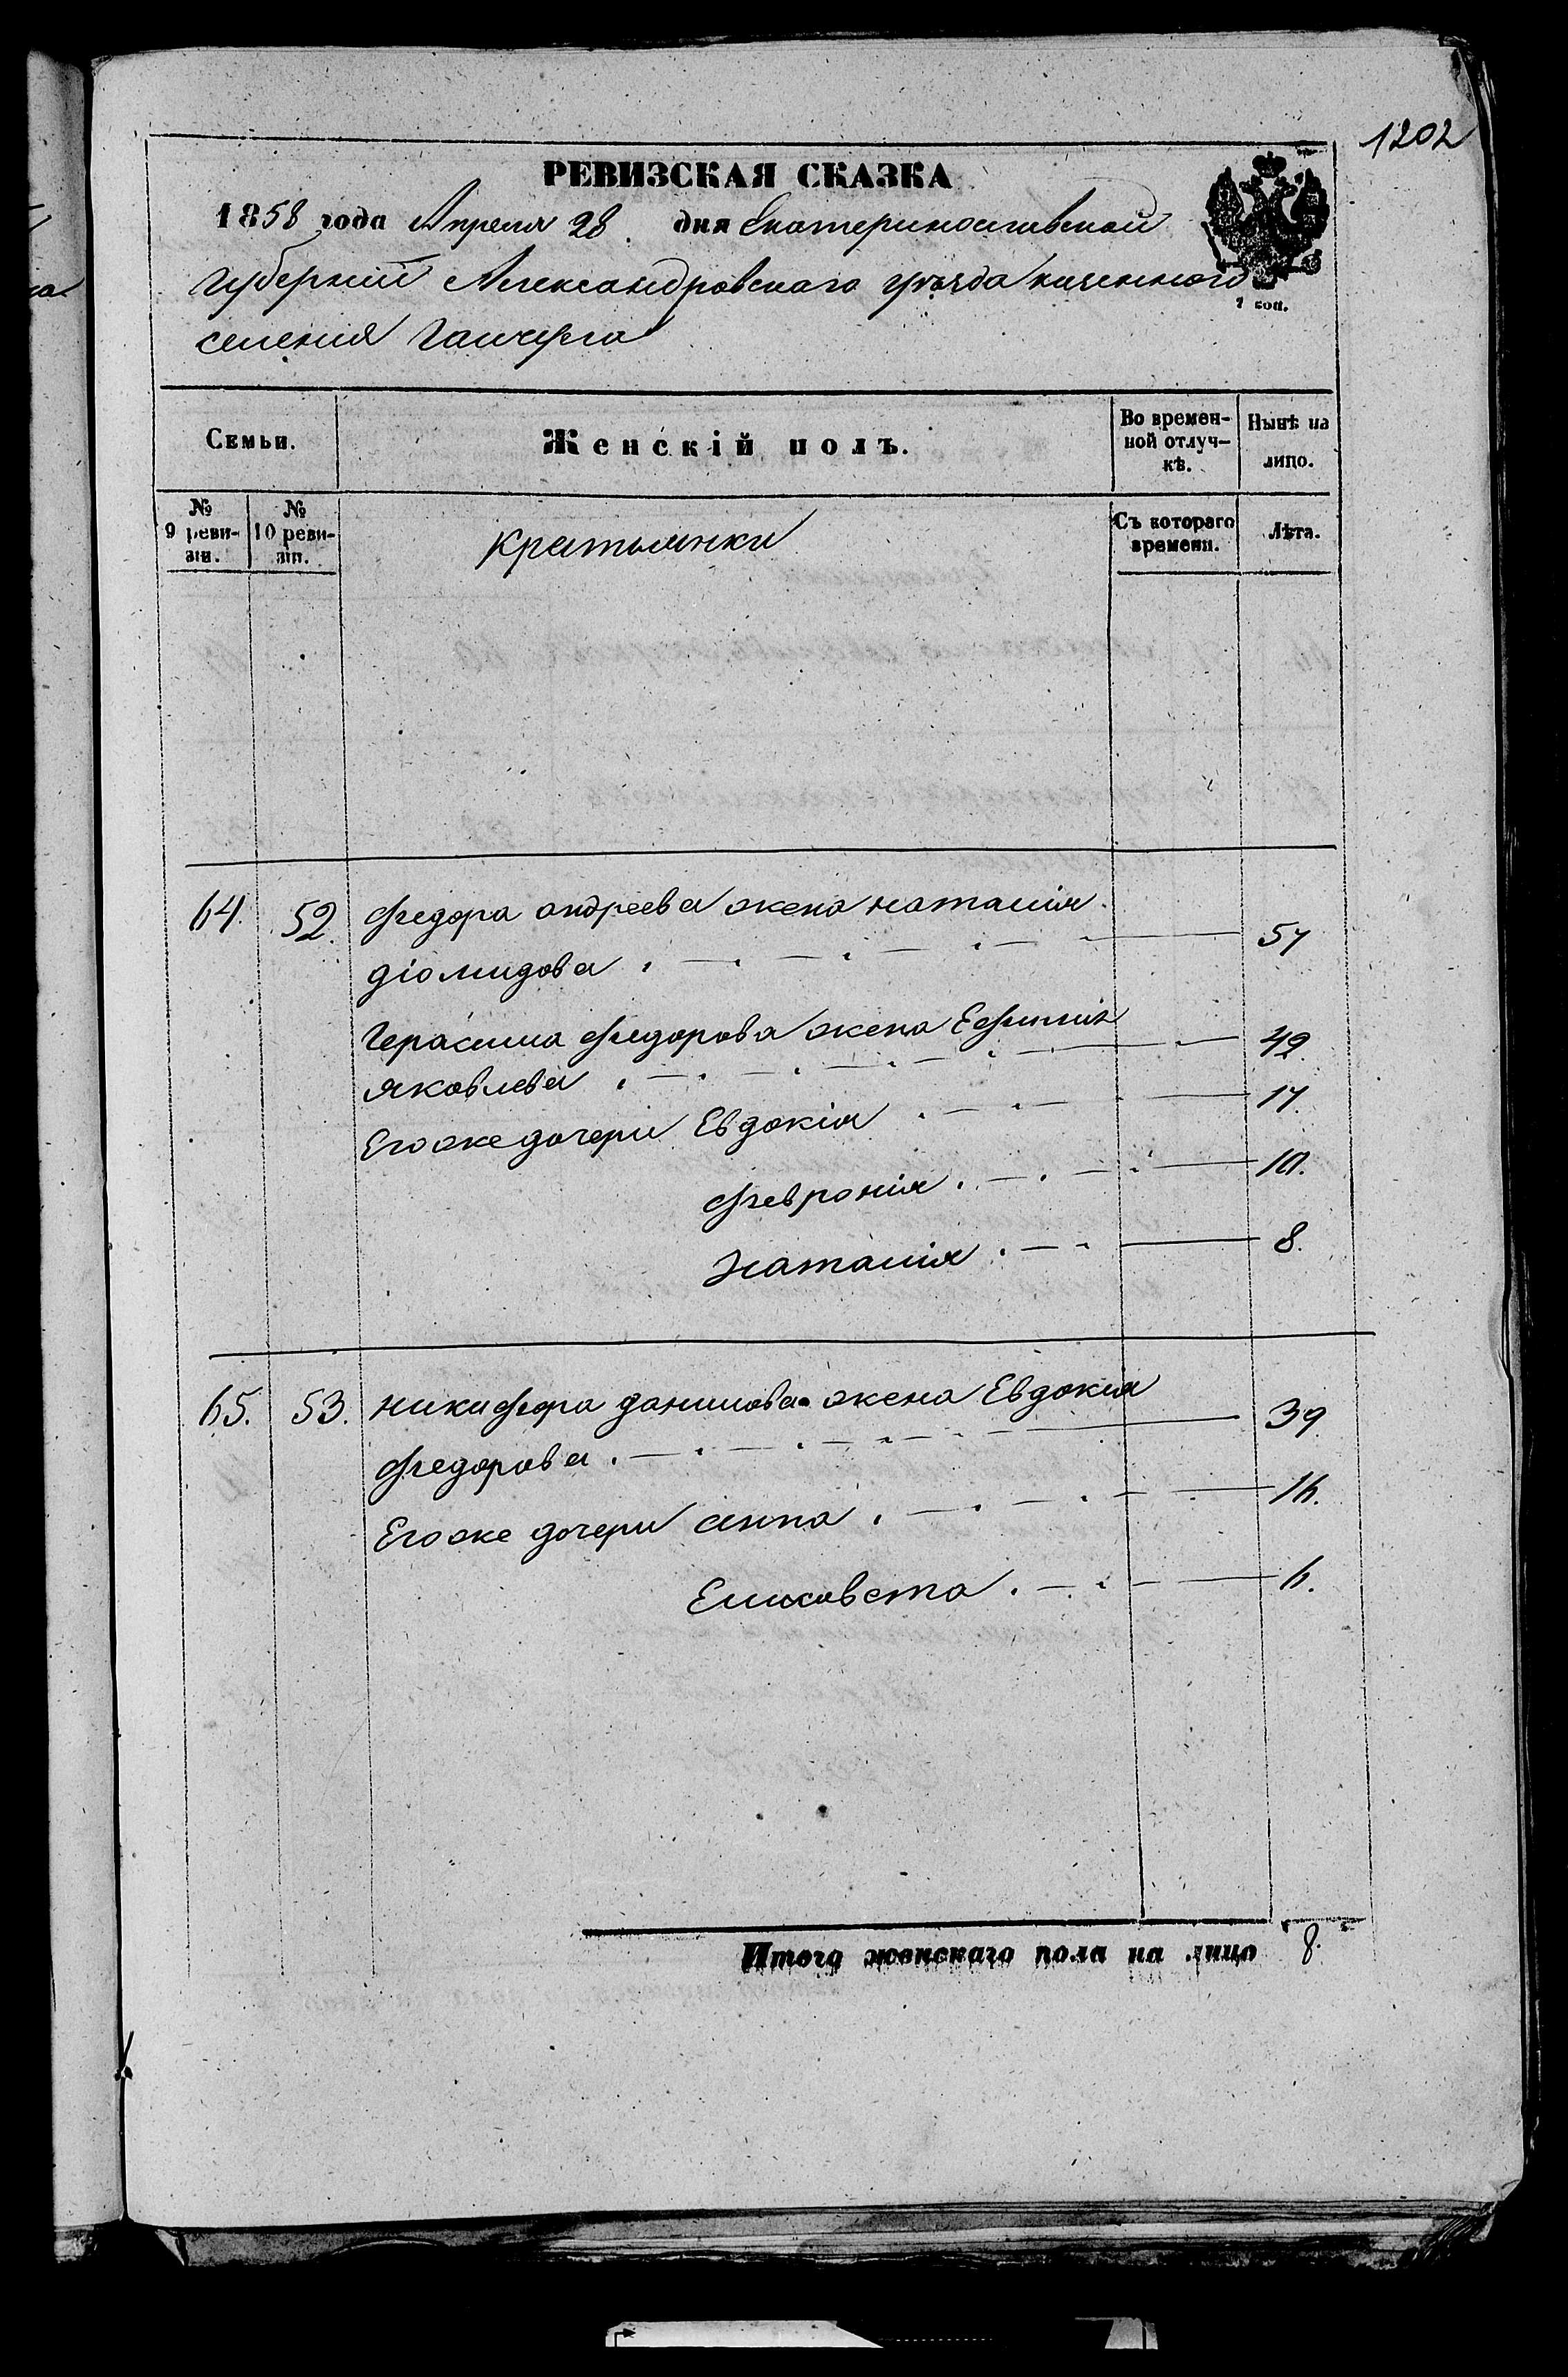 1202
РЕВИЗСКАЯ СКАЗКА
1858 года Апреля 28. дня Екатеринославской
губернии Александровскаго уѣзда казенного
1 коп.
селения Гайчура
Семьи. Женскій полъ. Во времен-ной отлуч-кѣ. Нынѣ на лицо.
№ 9 реви-зіи. № 10 реви-зіи. Крестьянки Съ котораго времени. Лѣта.
64. 52. Федора андреева жена наталия
діомидова 57
Герасима федорова жена Ефимия
яковлева 42.
Его же дочери Евдокія 17.
феврония 10.
Наталия 8.
65. 53. никифора данилова жена Евдокия
федорова 39
Его же дочери анна 16.
Елисавета 6.
Итого женскаго пола на лицо 8.